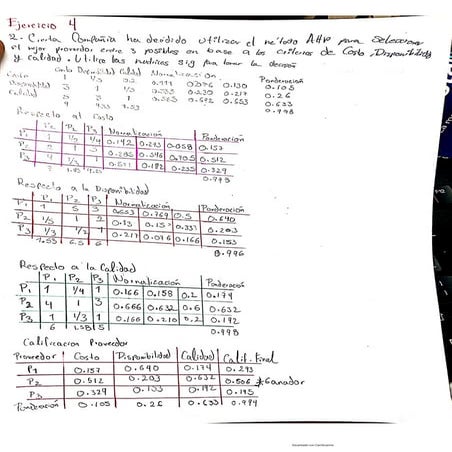 Ejercicio 4
2. Cierta Compañia ha decidido utilizar el metodo AHP para Seleccionar
el mejor proveedor entre 3 posibles en base a los criterios de Costo, Disponibilidad
y calidad. Utilice las matrices sig para tomar la decision
Costo Disponibilidad Calidad Normalización Ponderación
Costo 1 1/3 0.111 0.076 0.130 0.105
Disponibilidad 3 1 1/3 0.333 0.230 0.217 0.26
Calidad 3 1 0.692 0.653 0.633
9 4.33 1.53 0.998
Respecto al Costo
P1 P2 P3 Normalización Ponderación
P1 1 1/2 1/4 0.142 0.058 0.157
P2 2 1 3 0.285 0.705 0.512
P3 4 1/3 1 0.571 0.182 0.235 0.329
7 0.998
Respecto a la Disponibilidad
P1 P2 P3 Normalización Ponderación
P1 1 5 3 0.653 0.769 0.5 0.640
P2 1/5 1 2 0.13 0.15 0.331 0.203
P3 1/3 1/2 1 0.217 0.076 0.166 0.153
1.53 6.5 6 0.996
Respecto a la Calidad
P1 P2 P3 Normalización Ponderación
P1 1 1/4 1 0.166 0.158 0.2 0.174
P2 4 1 3 0.666 0.632 0.6 0.632
P3 1 1/3 1 0.166 0.210 0.2 0.192
6 1.58 5 0.998
Calificacion Proveedor
Proveedor Costo Disponibilidad Calidad Calif. Final
P1 0.157 0.640 0.174 0.293
P2 0.512 0.203 0.632 0.506 *Ganador
P3 0.329 0.153 0.192 0.195
Ponderación 0.105 0.26 0.633 0.994